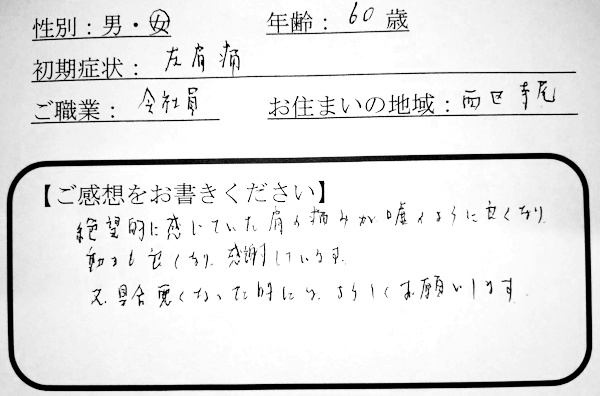 性別：男・女 年齢：60歳
初期症状：左肩痛
ご職業：会社員 お住まいの地域：西区寺尾
【ご感想をお書きください】
絶望的に感じていた肩の痛みが嘘のように良くなり
動きも良くなり、感謝しています。
又、具合悪くなった時には、よろしくお願いします。